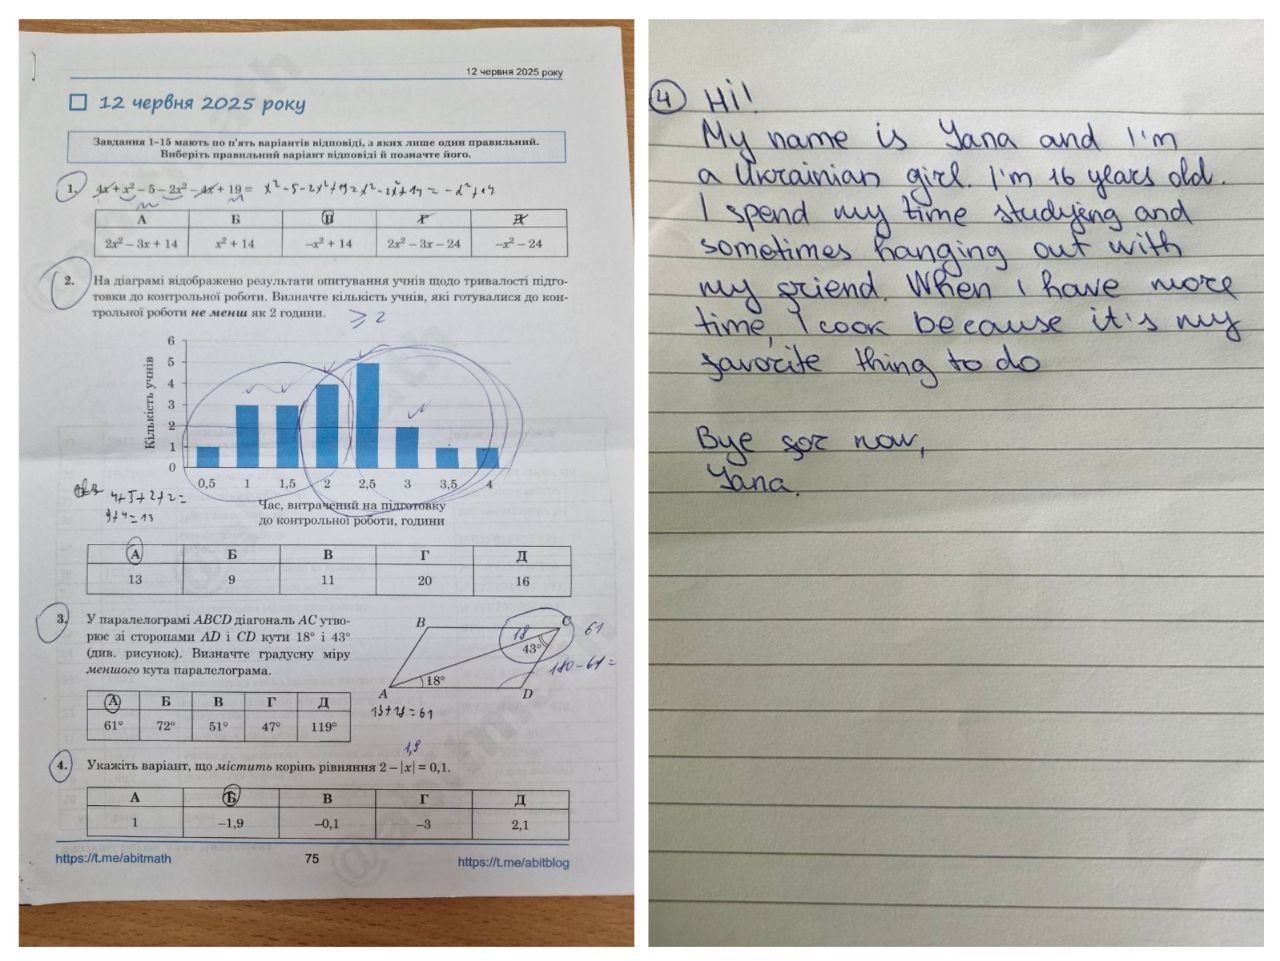 12 червня 2025 року
12 червня 2025 року
Завдання 1–15 мають по п'ять варіантів відповіді, з яких лише один правильний.
Виберіть правильний варіант відповіді й позначте його.
1. 4x + x² – 5 – 2x² – 4x + 19 = x² - 5 - 2x² + 19 = x² - 2x² + 14 = - x² + 14
А Б В Г Д
2x² – 3x + 14 x² + 14 –x² + 14 2x² – 3x – 24 –x² – 24
2. На діаграмі відображено результати опитування учнів щодо тривалості підго-
товки до контрольної роботи. Визначте кількість учнів, які готувалися до кон-
трольної роботи не менш як 2 години.
≥ 2
Кількість учнів
6
5
4
3
2
1
0
0,5 1 1,5 2 2,5 3 3,5 4
Час, витрачений на підготовку
до контрольної роботи, години
4+5+2+2=
9+4=13
А Б В Г Д
13 9 11 20 16
3. У паралелограмі ABCD діагональ AC утво-
рює зі сторонами AD і CD кути 18° і 43°
(див. рисунок). Визначте градусну міру
меншого кута паралелограма.
B C 61
18
43°
180-61=
18°
A D
=61
А Б В Г Д
61° 72° 51° 47° 119°
1,9
4. Укажіть варіант, що містить корінь рівняння 2 – |x| = 0,1.
А Б В Г Д
1 –1,9 –0,1 –3 2,1
https://t.me/abitmath 75 https://t.me/abitblog
4 Hi!
My name is Yana and I'm
a Ukrainian girl. I'm 16 years old.
I spend my time studying and
sometimes hanging out with
my friend. When I have more
time, I cook because it's my
favorite thing to do
Bye for now,
Yana.